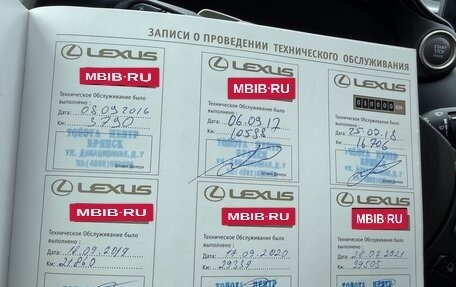 ЗАПИСИ О ПРОВЕДЕНИИ ТЕХНИЧЕСКОГО ОБСЛУЖИВАНИЯ
START
STOP
LEXUS
MBIB-RU
Техническое Обслуживание было
выполнено:
Дата: 08.09.2016
Км: 3790
ТОЙОТА ЦЕНТР
БРЯНСК
Штамп Дилера
LEXUS
MBIB-RU
Техническое Обслуживание было
выполнено:
Дата: 06.09.17
Км: 10588
Штамп Дилера
LEXUS
030000 КМ
Техническое Обслуживание было
выполнено:
Дата: 25.07.18
Км: 16706
Штамп Дилера
LEXUS
MBIB-RU
Техническое Обслуживание было
выполнено:
Дата: 18.09.2019
Км: 21860
ТОЙОТА ЦЕНТР
БРЯНСК
LEXUS
MBIB-RU
Техническое Обслуживание было
выполнено:
Дата: 17.09.2020
Км: 29339
ТОЙОТА ЦЕНТР
LEXUS
MBIB-RU
Техническое Обслуживание было
выполнено:
Дата: 28.07.2021
Км: 39505